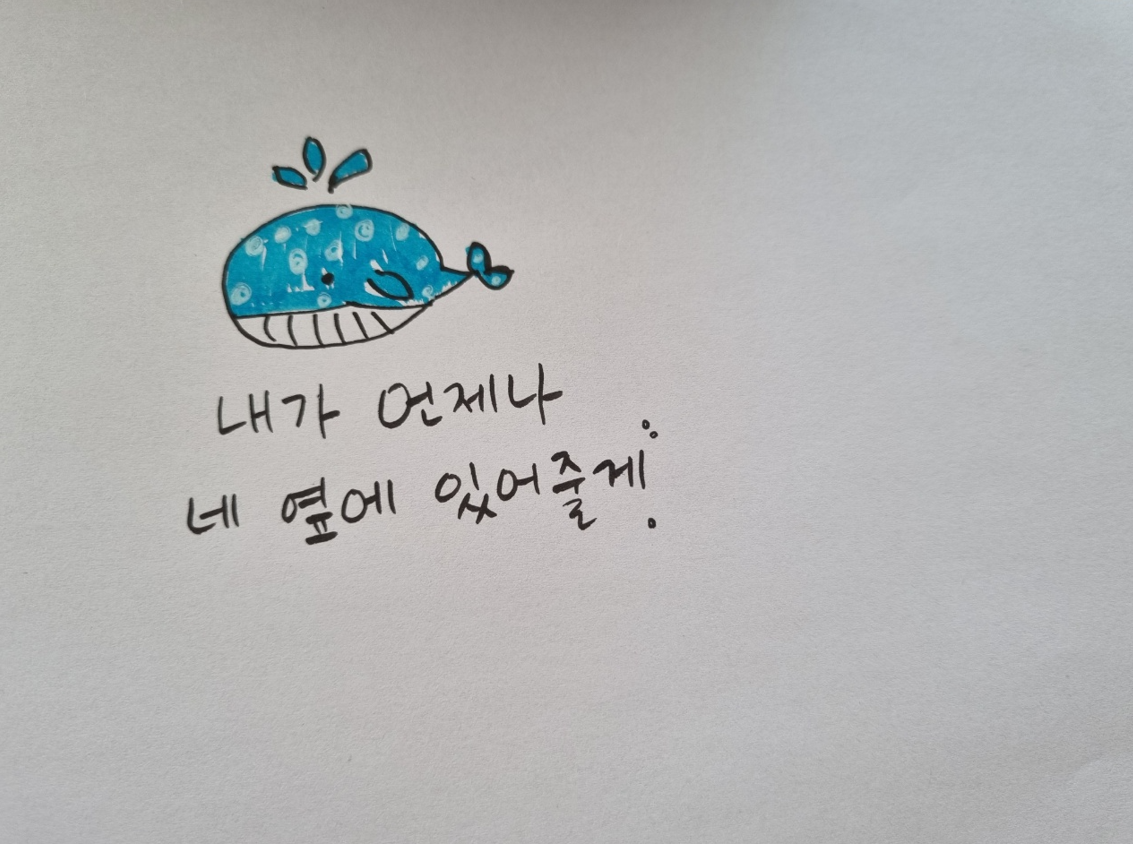 내가 언제나
네 옆에 있어줄게.